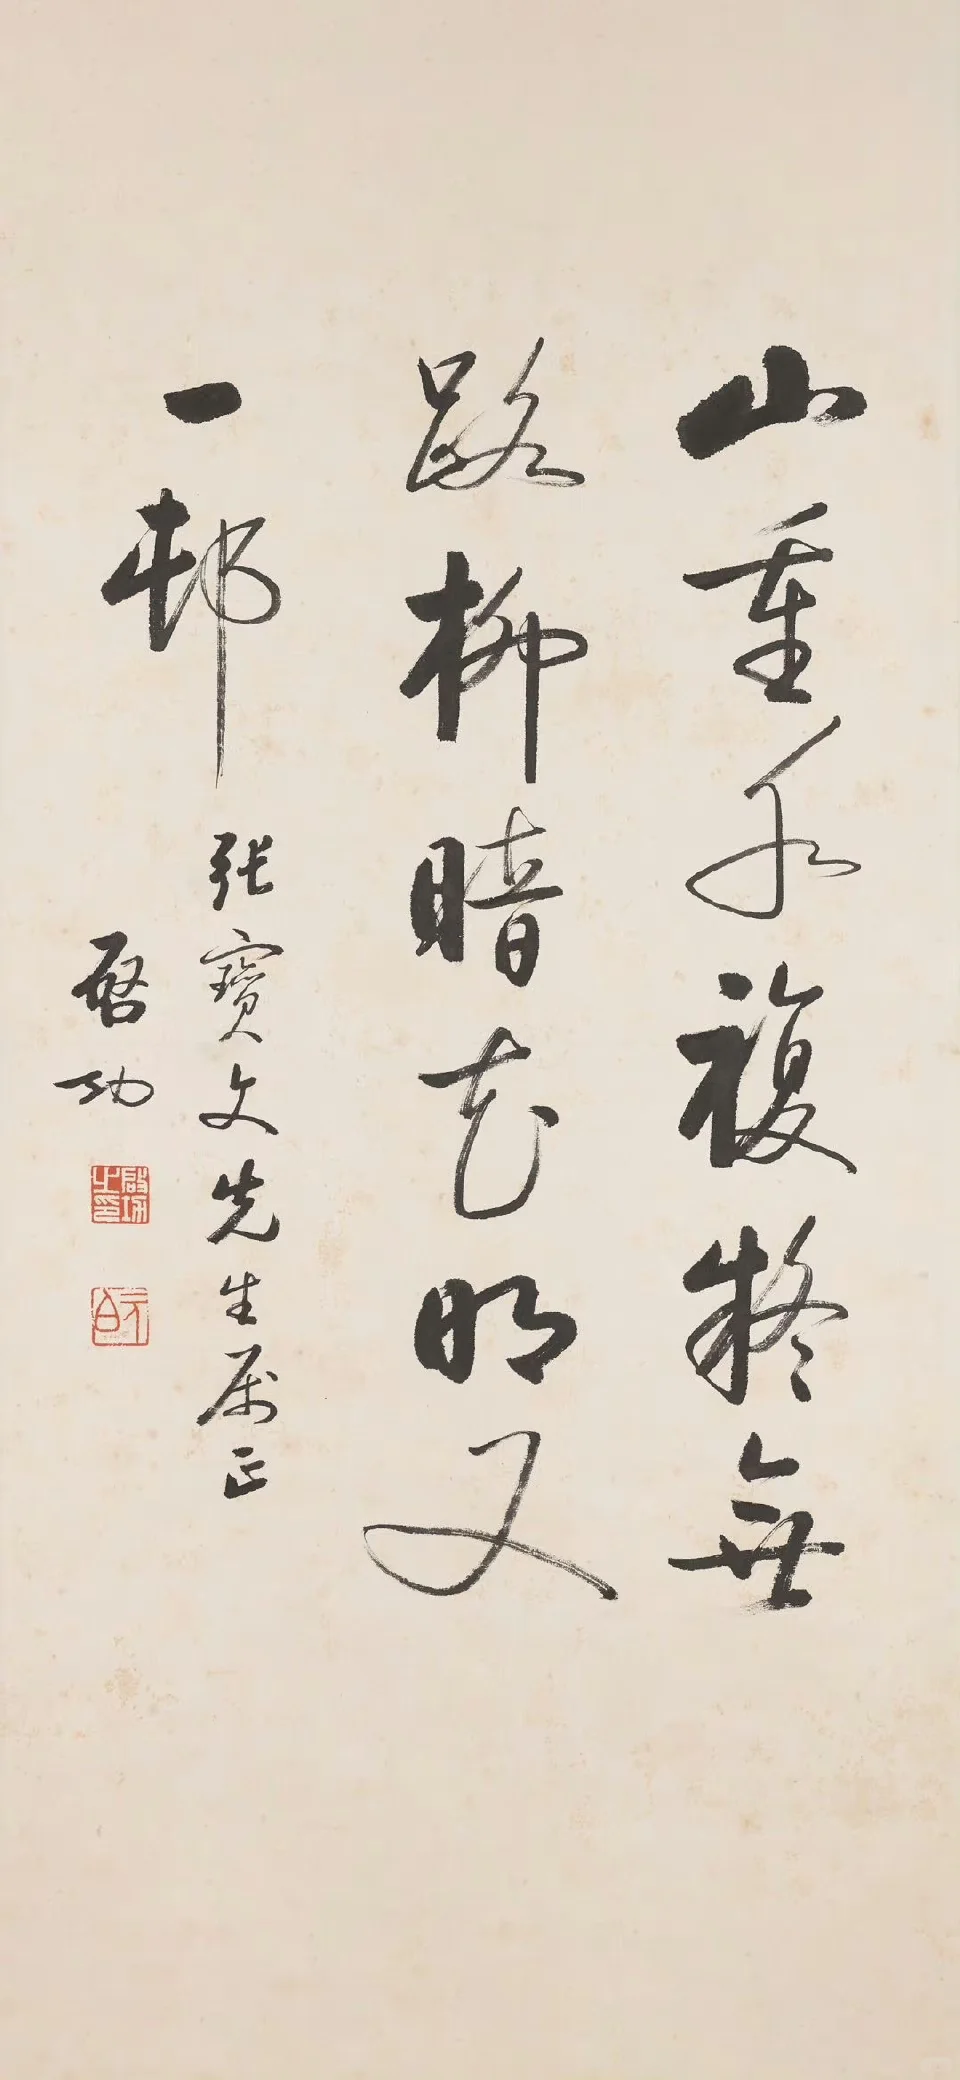 山重水複疑無
路柳暗花明又
一邨
张寶文先生属正
启功
啟功之印
元白